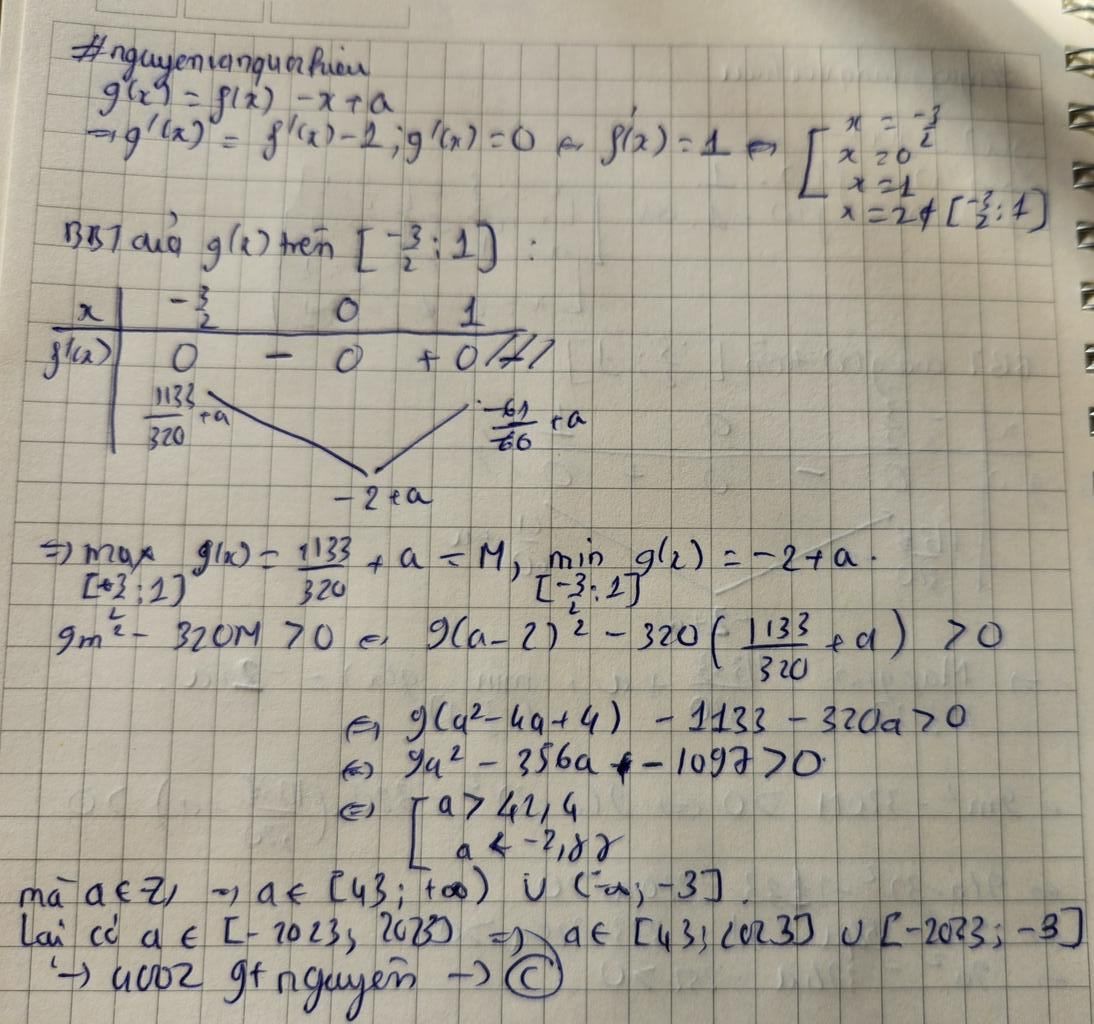 g(x) = f(x) - x + a
⇒ g'(x) = f'(x) - 1; g'(x) = 0 ⇔ f'(x) = 1 ⇔ [ x = -3/2
x = 0
x = 1
x = 2 ∉ [-3/2; 1]
BBT của g(x) trên [-3/2; 1] :
x -3/2 0 1
f'(x) 0 - 0 + 0
1133/320 + a -61/ + a
-2 + a
⇒ max g(x) = 1133/320 + a = M, min g(x) = -2 + a.
[-3/2; 1] [-3/2; 1]
9m² - 320M > 0 ⇔ 9(a - 2)² - 320(1133/320 + a) > 0
⇔ 9(a² - 4a + 4) - 1133 - 320a > 0
⇔ 9a² - 356a - 1097 > 0
⇔ [ a > 42,4
a < -2,87
mà a ∈ Z, ⇒ a ∈ [43; +∞) ∪ (-∞; -3].
Lại có a ∈ [-2023; 2023] ⇒ a ∈ [43; 2023] ∪ [-2023; -3]
→ 4002 gt nguyên → C